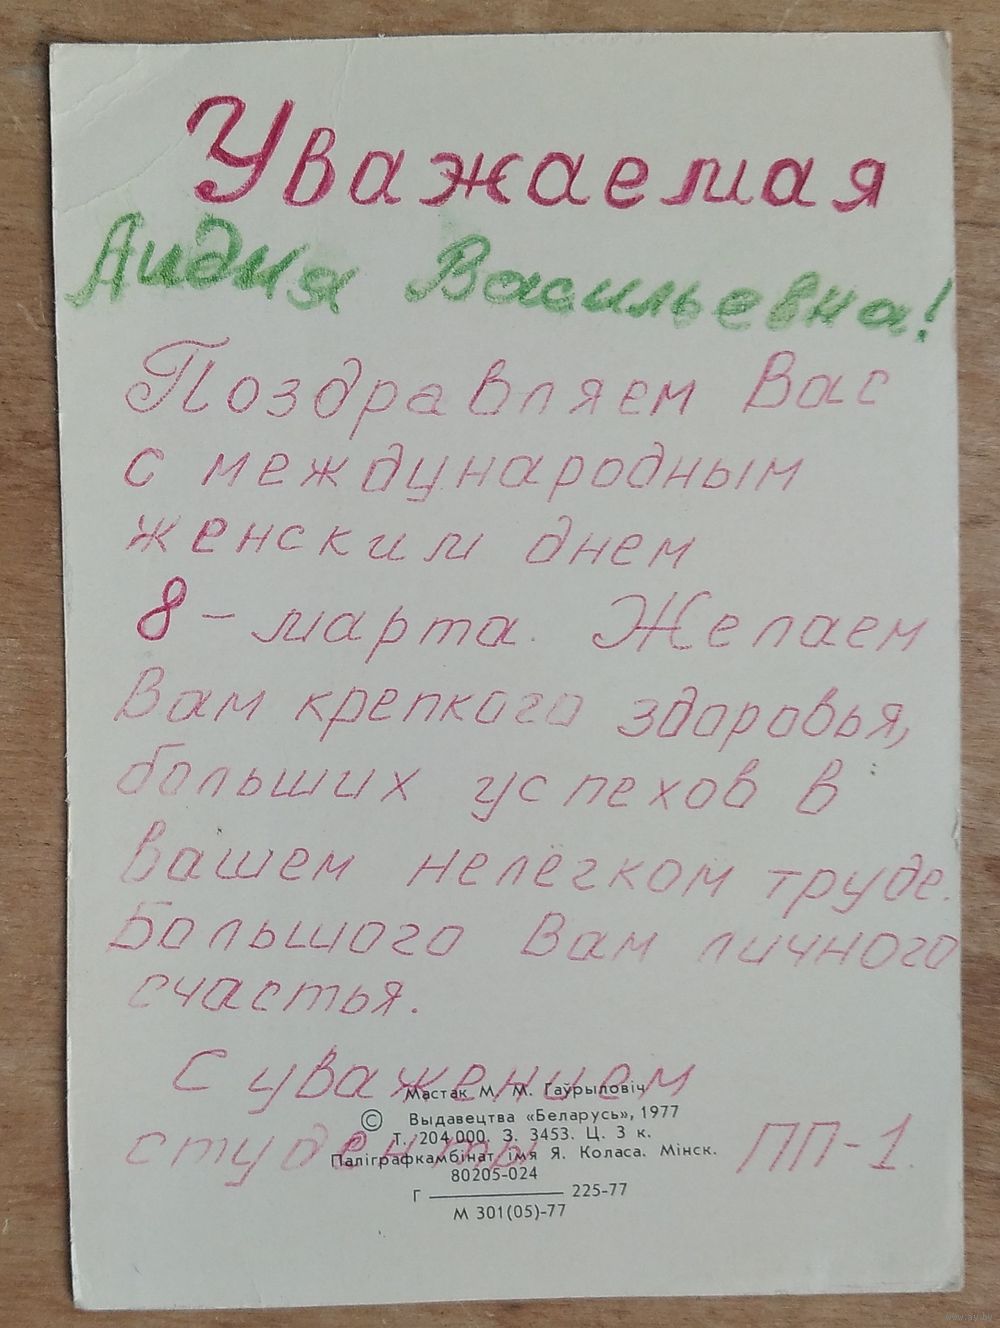 Уважаемая
Лидия Васильевна!
Поздравляем Вас
с международным
женским днем
8 – марта. Желаем
Вам крепкого здоровья,
больших успехов в
вашем нелёгком труде.
Большого Вам личного
счастья.
С уважением
студенты ПП-1.
Мастак М. М. Гаўрыловіч
© Выдавецтва «Беларусь», 1977
Т. 204 000. З. 3453. Ц. 3 к.
Паліграфкамбінат імя Я. Коласа. Мінск.
80205-024
Г ——— 225-77
М 301(05)-77
www.ay.by